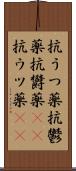 抗うつ薬抗鬱
薬抗欝薬
抗ウツ薬